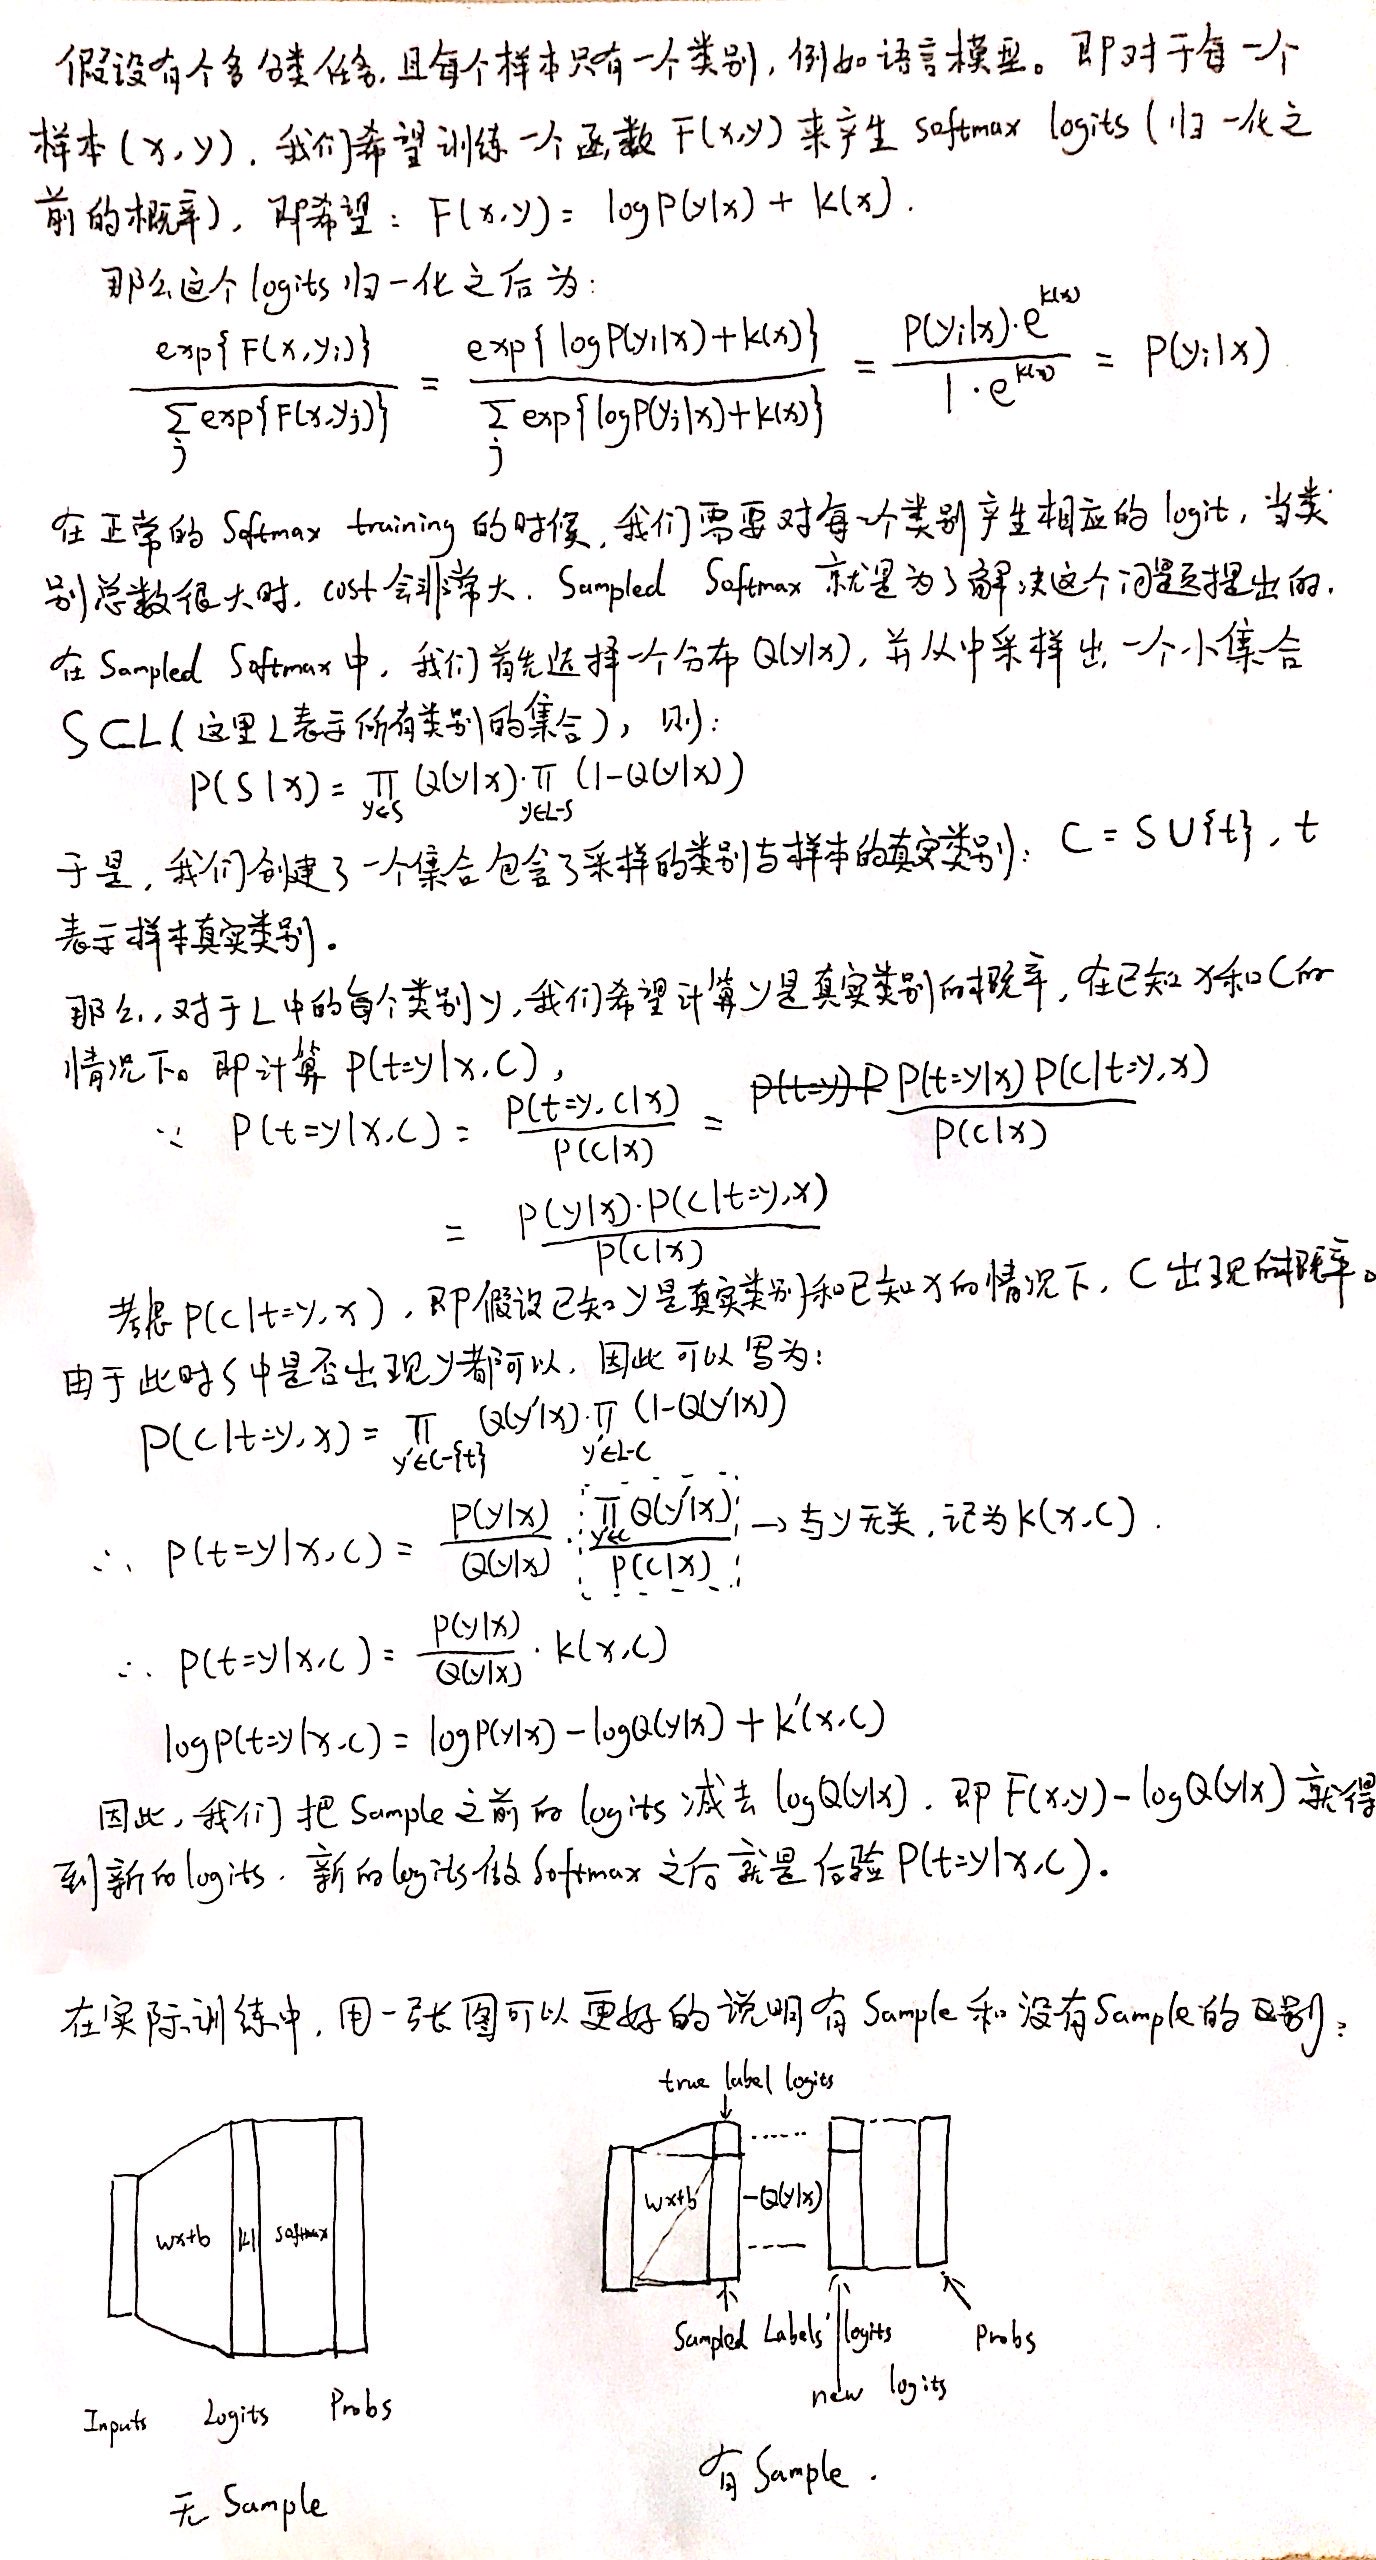 假设有个多分类任务,且每个样本只有一个类别,例如语言模型。即对于每一个
样本(x,y),我们希望训练一个函数F(x,y)来产生softmax logits(归一化之
前的概率),即希望:F(x,y)= logP(y|x) + K(x).
那么这个logits归一化之后为:
exp{F(x,yi)} / Σj exp{F(x,yj)} = exp{logP(yi|x)+K(x)} / Σj exp{logP(yj|x)+K(x)} = P(yi|x)·e^K(x) / 1·e^K(x) = P(yi|x)
在正常的Softmax training的时候,我们需要对每个类别产生相应的logit,当类
别总数很大时,cost会非常大.Sampled Softmax就是为了解决这个问题提出的.
在Sampled Softmax中,我们首先选择一个分布Q(y|x),并从中采样出一个小集合
S⊂L(这里L表示所有类别的集合),则:
P(S|x)= ∏y∈S Q(y|x)·∏y∈L-S (1-Q(y|x))
于是,我们创建了一个集合包含了采样的类别与样本的真实类别: C = S∪{t}, t
表示样本真实类别.
那么,对于L中的每个类别y,我们希望计算y是真实类别的概率,在已知x和C的
情况下。即计算P(t=y|x,C),
∵ P(t=y|x,C) = P(t=y,C|x) / P(C|x) = P(t=y|x)P(C|t=y,x) / P(C|x)
= P(y|x)·P(C|t=y,x) / P(C|x)
考虑P(C|t=y,x),即假设已知y是真实类别和已知x的情况下,C出现的概率。
由于此时S中是否出现y都可以,因此可以写为:
P(C|t=y,x) = ∏y'∈C-{t} Q(y'|x)·∏y'∈L-C (1-Q(y'|x))
∴ P(t=y|x,C) = P(y|x) / Q(y|x) · ∏y'∈C Q(y'|x) / P(C|x) → 与y无关,记为K(x,C).
∴ P(t=y|x,C) = P(y|x) / Q(y|x) · K(x,C)
logP(t=y|x,C) = logP(y|x) - logQ(y|x) + K'(x,C)
因此,我们把Sample之前的logits减去logQ(y|x),即F(x,y)-logQ(y|x)就得
到新的logits.新的logits做Softmax之后就是后验P(t=y|x,C).
在实际训练中,用一张图可以更好的说明有Sample和没有Sample的区别:
true label logits
wx+b |L| softmax
wx+b -Q(y|x)
Sampled Labels' logits
Probs
new logits
Inputs Logits Probs
有Sample.
无Sample